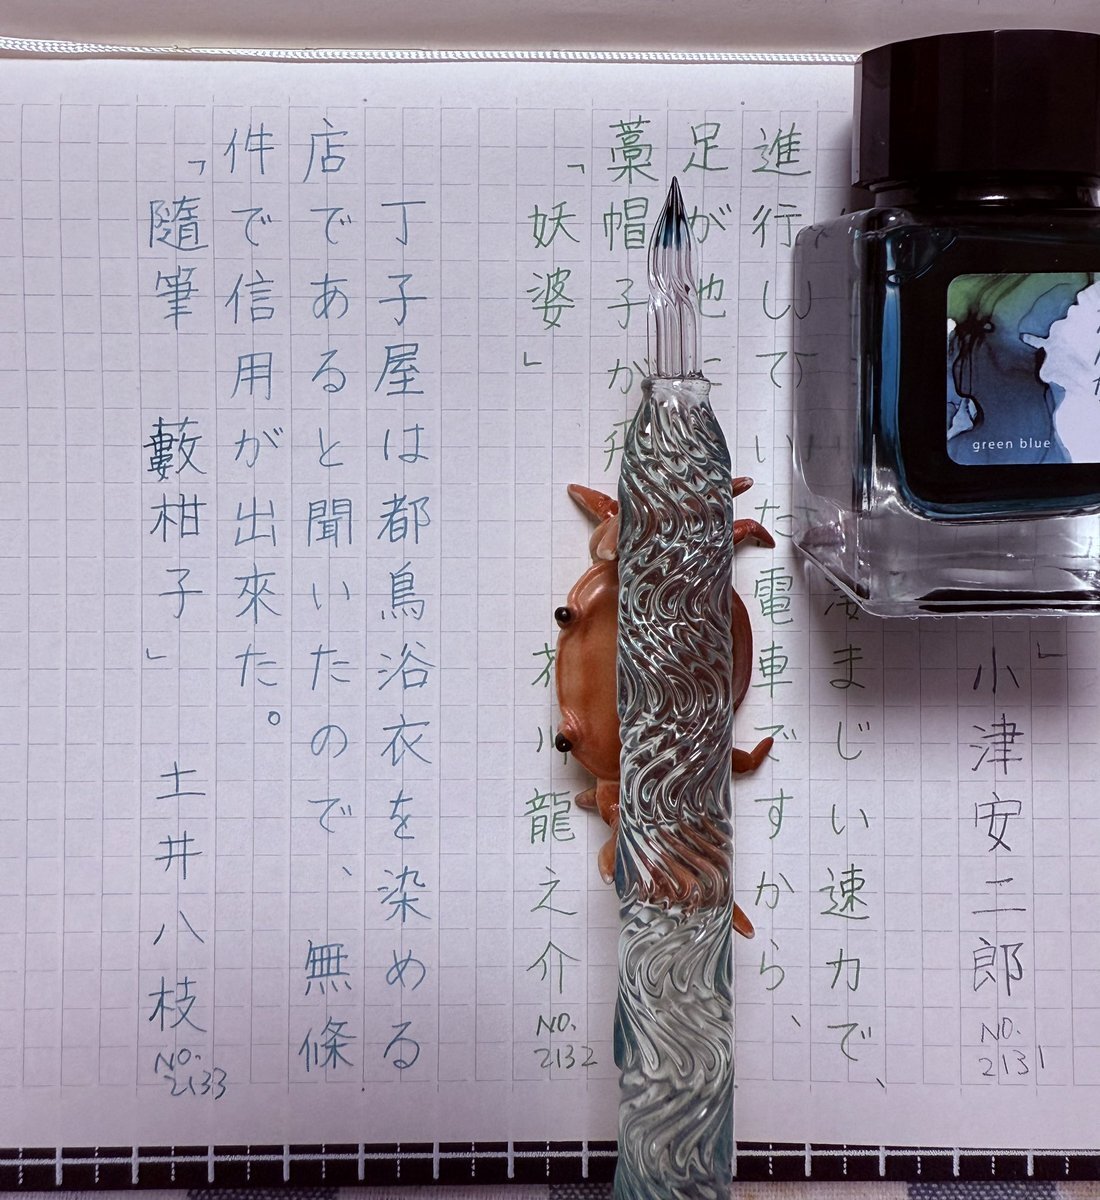 」
小津安二郎
NO.
2131
凄まじい速力で、
進行していた電車ですから、
足が地に
藁帽子が飛
「妖婆」 芥川龍之介
NO.
2132
丁子屋は都鳥浴衣を染める
店であると聞いたので、無條
件で信用が出來た。
「隨筆 藪柑子」 土井八枝
NO.
2133
green blue